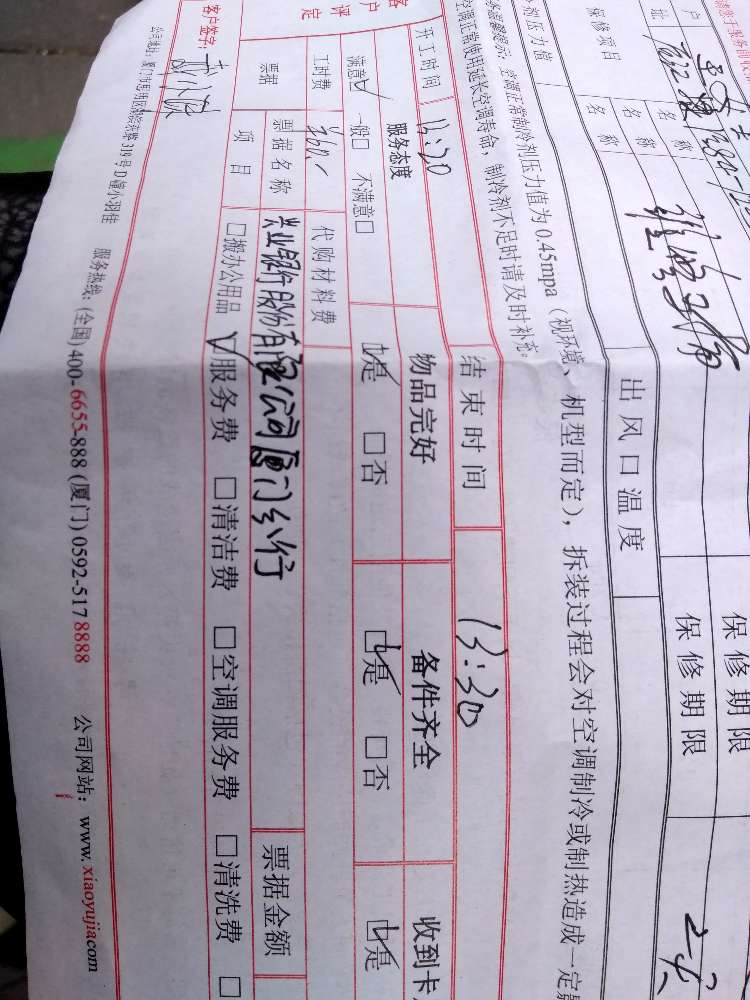 名 称 保 修 期 限
保修项目 名 称 维修马桶 保 修 期 限
剂压力值 出 风 口 温 度
务温馨提示：空调正常制冷剂压力值为 0.45mpa（视环境、机型而定），拆装过程会对空调制冷或制热造成一定
空调正常使用延长空调寿命，制冷剂不足时请及时补充。
开 工 时 间 13:20 结 束 时 间 13:30
客户评定 服务态度 物品完好 备件齐全 收到卡
满意☑ 一般□ 不满意□ ☑是 □否 ☑是 □否 ☑是
工时费 ¥60.- 代购材料费
票据 票 据 名 称 兴业银行股份有限公司厦门分行 票据金额
项 目 □搬办公用品 ☑服务费 □清洁费 □空调服务费 □清洗费 □
客户签字：
公司地址：厦门市思明区 319号D幢小羽佳 服务热线：(全国) 400-6655-888 (厦门) 0592-517 8888 公司网站：www.xiaoyujia.com